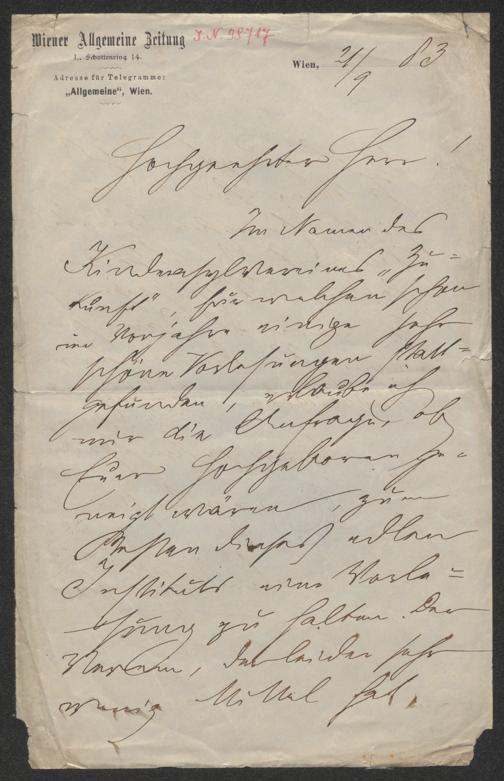 Wiener Allgemeine Zeitung
I., Schottenring 14.
Adresse für Telegramme:
„Allgemeine“, Wien.
I.N. 98717
Wien, 21/9 83
Hochgeehrter Herr!
Im Namen des
Kinderasylvereines „Zu=
kunft“, für welchen schon
im Vorjahre einige sehr
schöne Vorlesungen statt=
gefunden, erlaube ich
mir die Anfrage, ob
Euer Hochgeboren ge=
neigt wären, zum
Besten dieses edlen
Instituts eine Vorle=
sung zu halten. Der
Verein, der leider sehr
wenig Mittel hat,